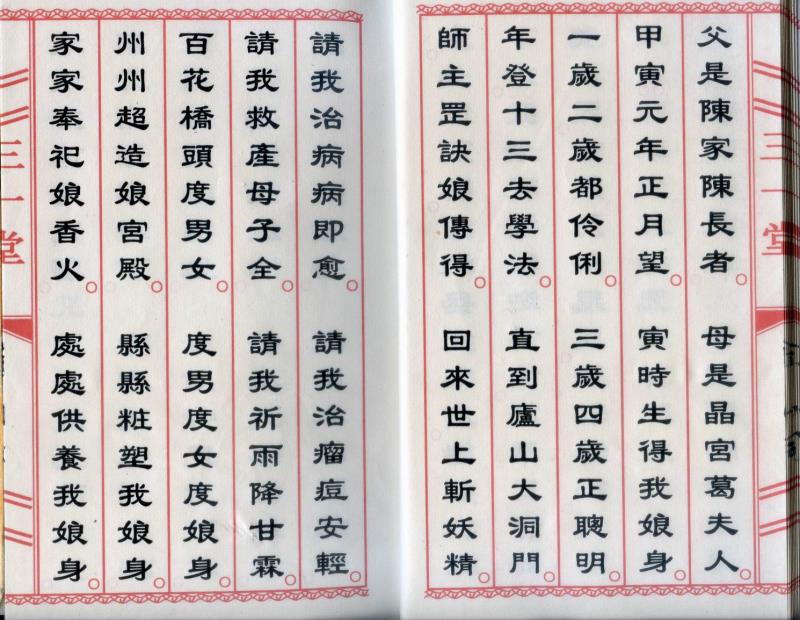 三一堂
父是陳家陳長者。母是晶宮葛夫人。
甲寅元年正月望。寅時生得我娘身。
一歲二歲都伶俐。三歲四歲正聰明。
年登十三去學法。直到廬山大洞門。
師主罡訣娘傳得。回來世上斬妖精。
請我治病病即愈。請我治瘤痘安輕。
請我救產母子全。請我祈雨降甘霖。
百花橋頭度男女。度男度女度娘身。
州州超造娘宮殿。縣縣粧塑我娘身。
家家奉祀娘香火。處處供養我娘身。
三一堂